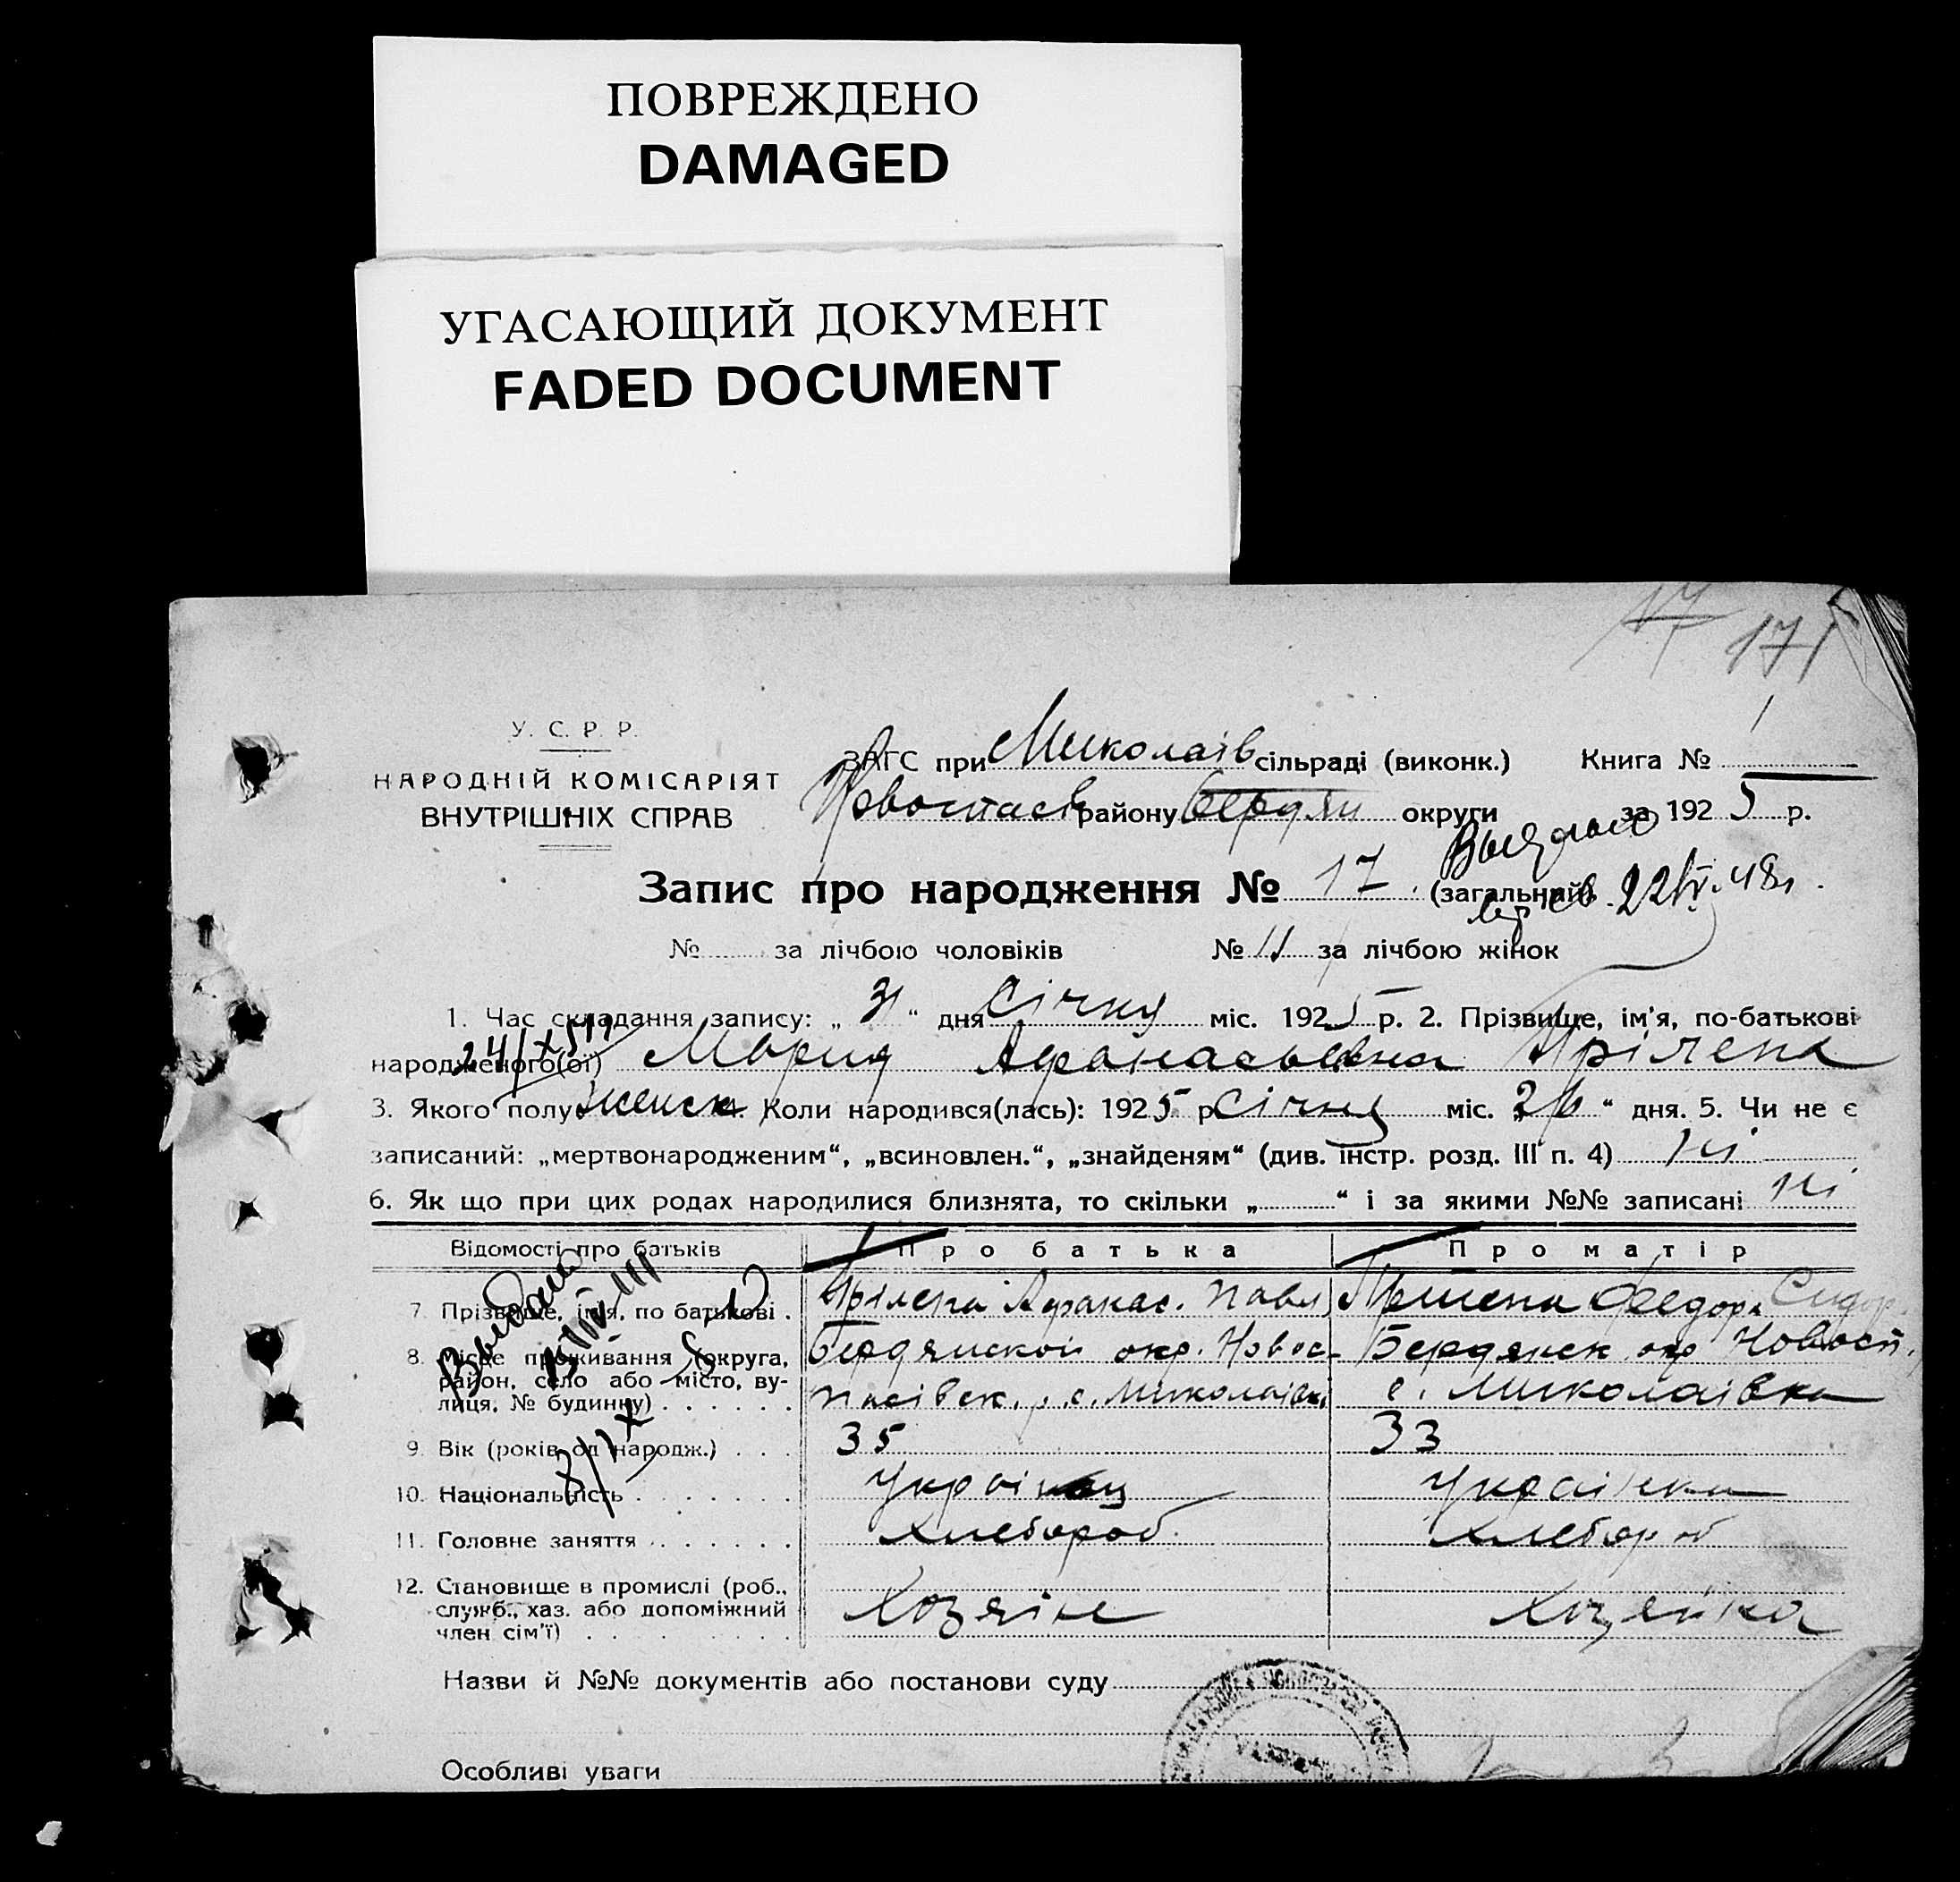 ПОВРЕЖДЕНО
DAMAGED
УГАСАЮЩИЙ ДОКУМЕНТ
FADED DOCUMENT
17 171
У. С. Р. Р.
НАРОДНІЙ КОМІСАРІЯТ
ВНУТРІШНІХ СПРАВ
ЗАГС при Миколаів сільраді (виконк.) Книга № 1
Новоспасів району Бердян округи за 1925 р.
Запис про народження № 17 (загальний) 22/IV.48г.
№ за лічбою чоловіків № 11 за лічбою жінок
1. Час складання запису: „31“ дня Січня міс. 1925 р. 2. Прізвище, ім'я, по-батькові
народженого(ої) Мария Афанасьевна Прілепа
3. Якого полу женск. Коли народився(лась): 1925 р Січня міс. „26“ дня. 5. Чи не є
записаний: „мертвонародженим“, „всиновлен.“, „знайденям“ (див. інстр. розд. III п. 4) ні
6. Як що при цих родах народилися близнята, то скільки „ “ і за якими №№ записані ні
Відомості про батьків Про батька Про матір
7. Прізвище, імя, по батькові. Прілепа Афанас. Павл Прилепа Федора Сидор.
8. Місце проживання (округа, Бердянской окр. Новос- Бердянск. окр Новосп.
район, село або місто, ву- пасівск. р. с. Миколаівк. с. Миколаівка
лиця, № будинку)
9. Вік (років од народж.) 35 33
10. Національність Украінец Украінка
11. Головне заняття Хлебороб Хлебороб
12. Становище в промислі (роб.,
служб., хаз. або допоміжний Хозяіне Хозяйка
член сім'ї)
Видано
Назви й №№ документів або постанови суду
Особливі уваги